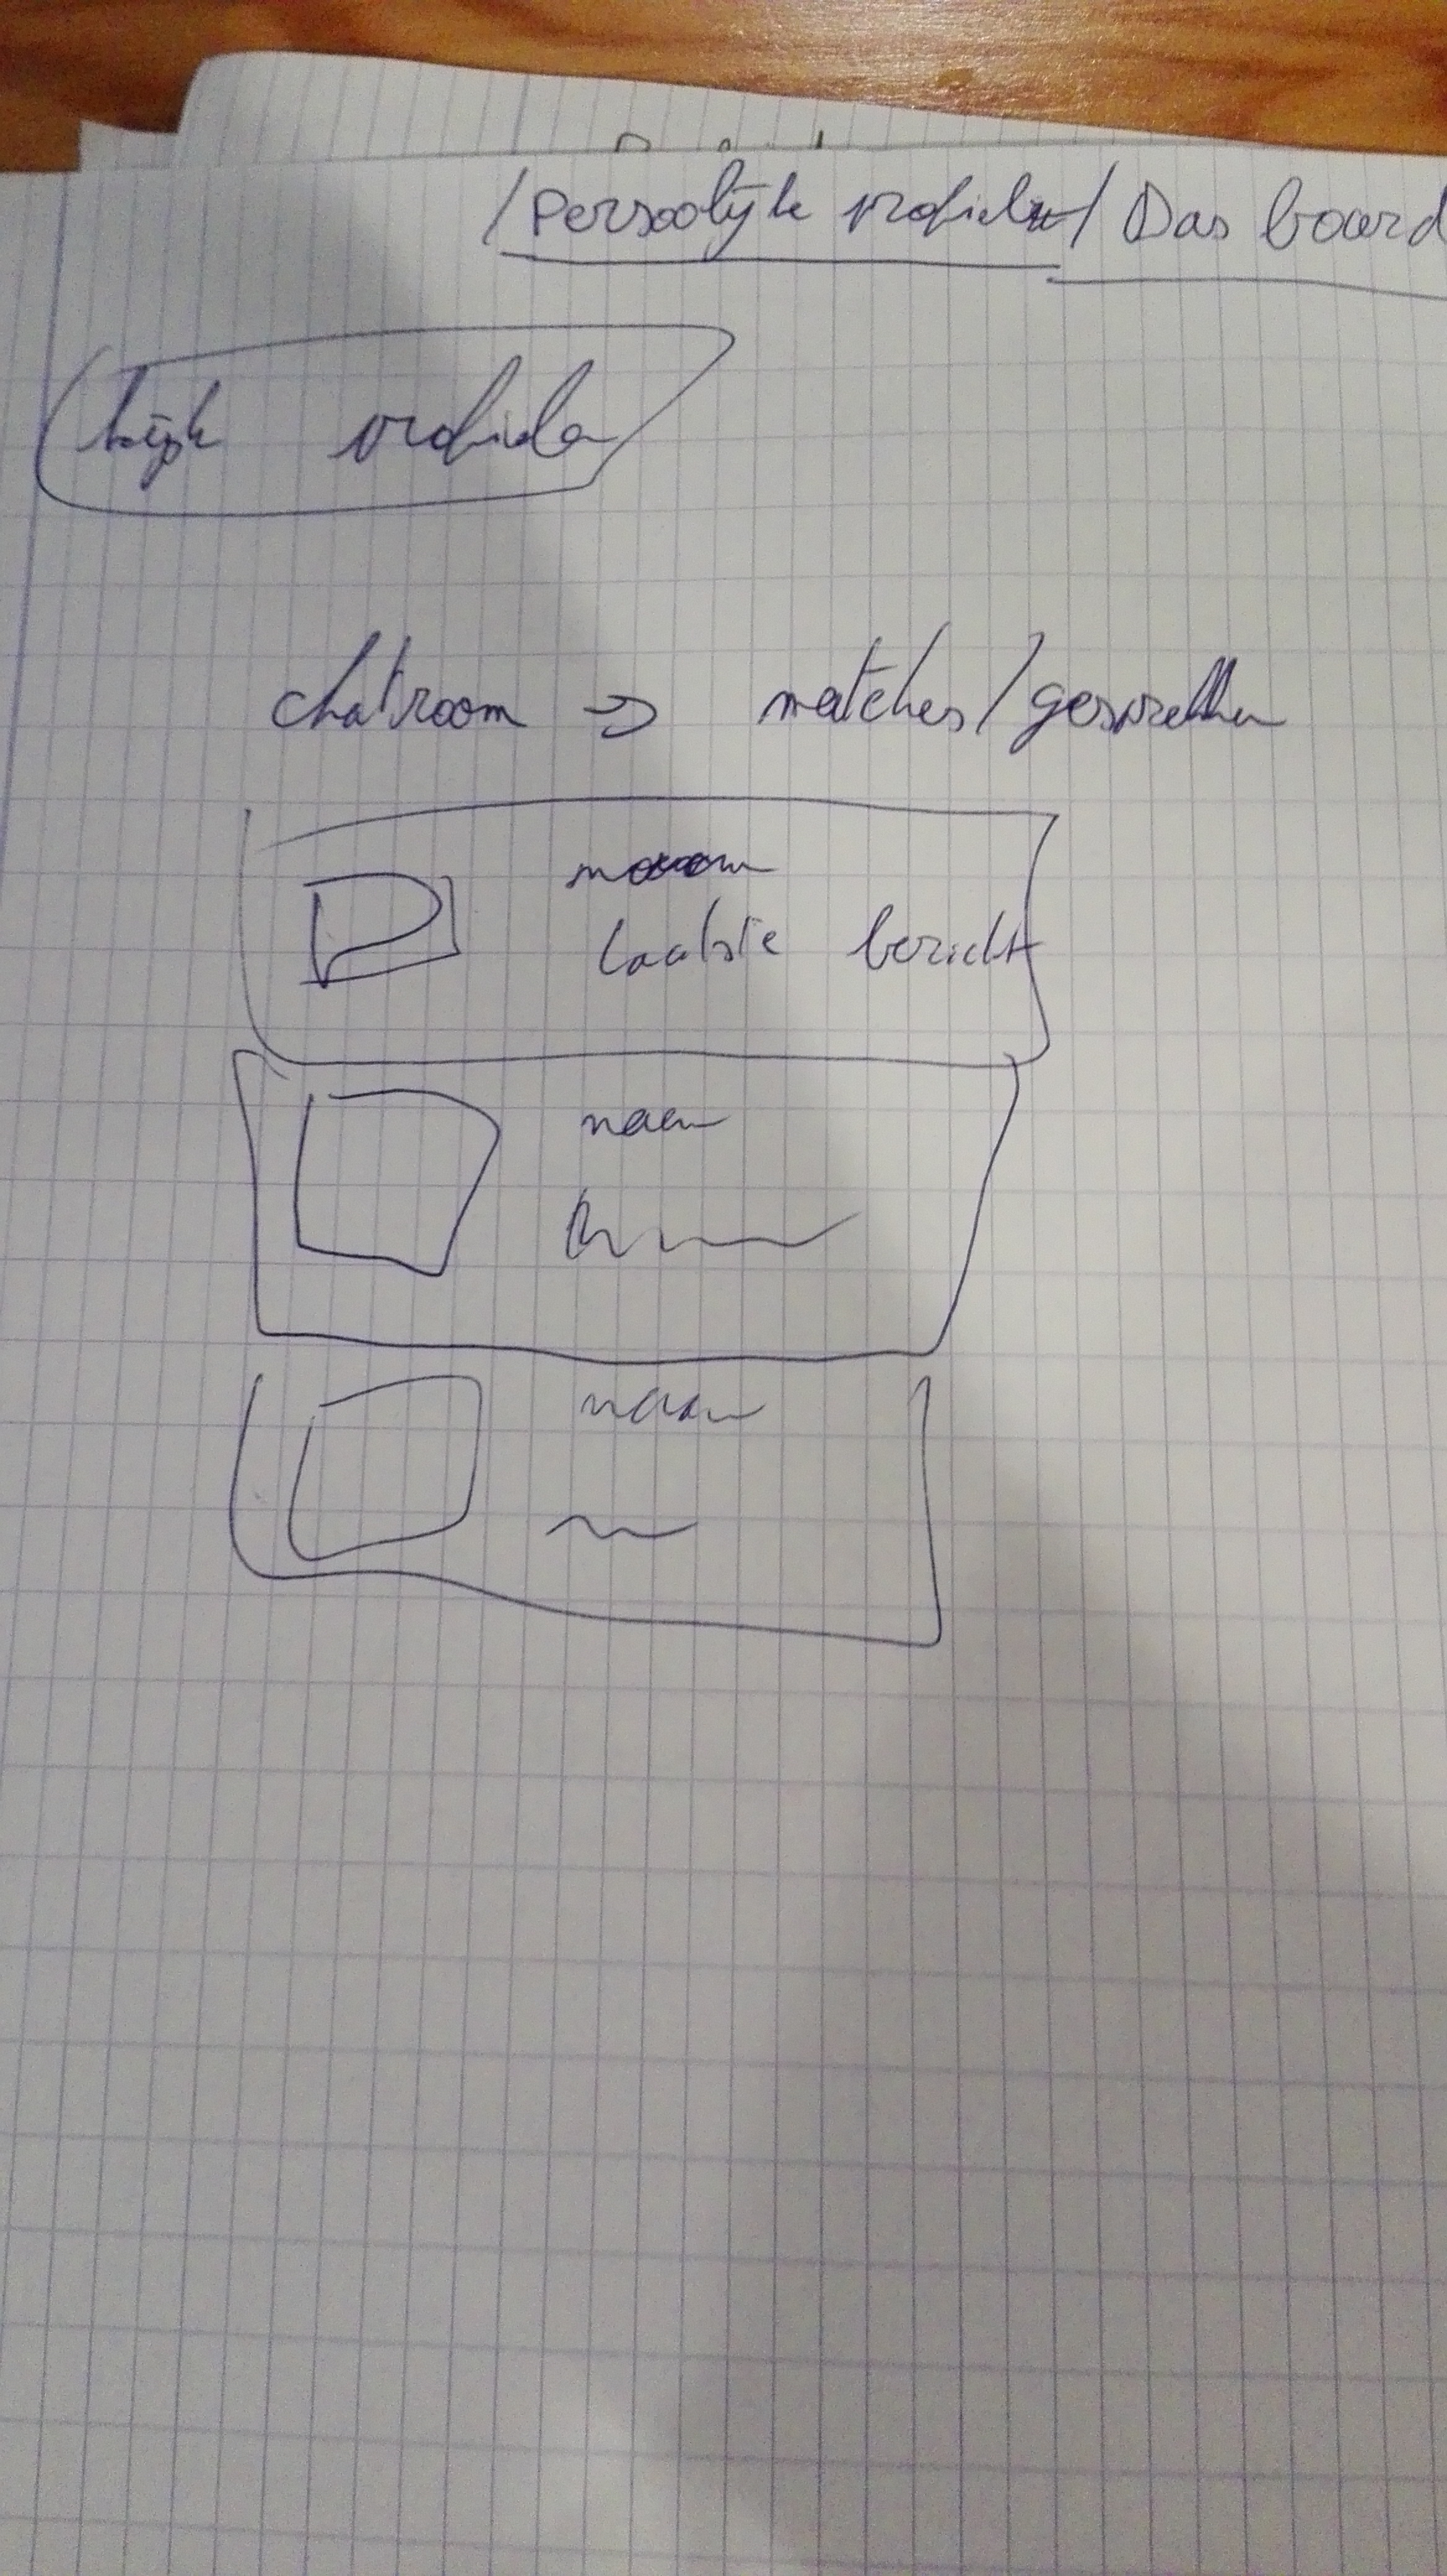 /Persoolijk profiel/ Das board
profielen
chatroom => matches/gesprekken
naam
laatste bericht
naam
naam